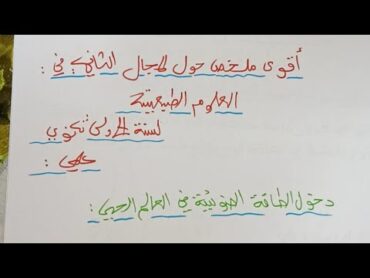 أقوى ملخص حول المجال الثاني في :
العلوم الطبيعية
لسنة الأولى ثانوي
علمي :
دخول الطاقة الضوئية في العالم الحي :